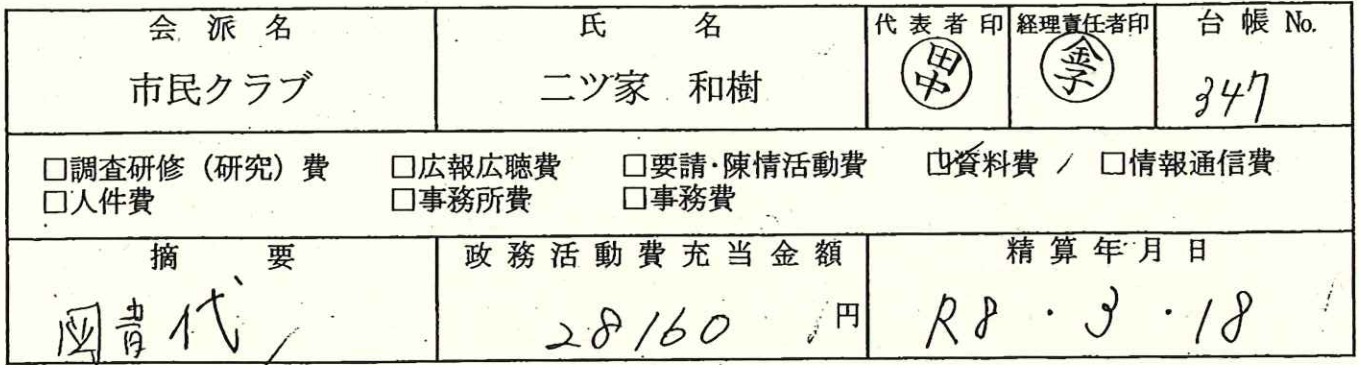 会派名 氏名 代表者印 経理責任者印 台帳 No.
市民クラブ 二ツ家 和樹 田中 金子 347
□調査研修（研究）費 □広報広聴費 □要請・陳情活動費 ☑資料費 □情報通信費
□人件費 □事務所費 □事務費
摘要 政務活動費充当金額 精算年月日
図書代 28160 円 R8・3・18